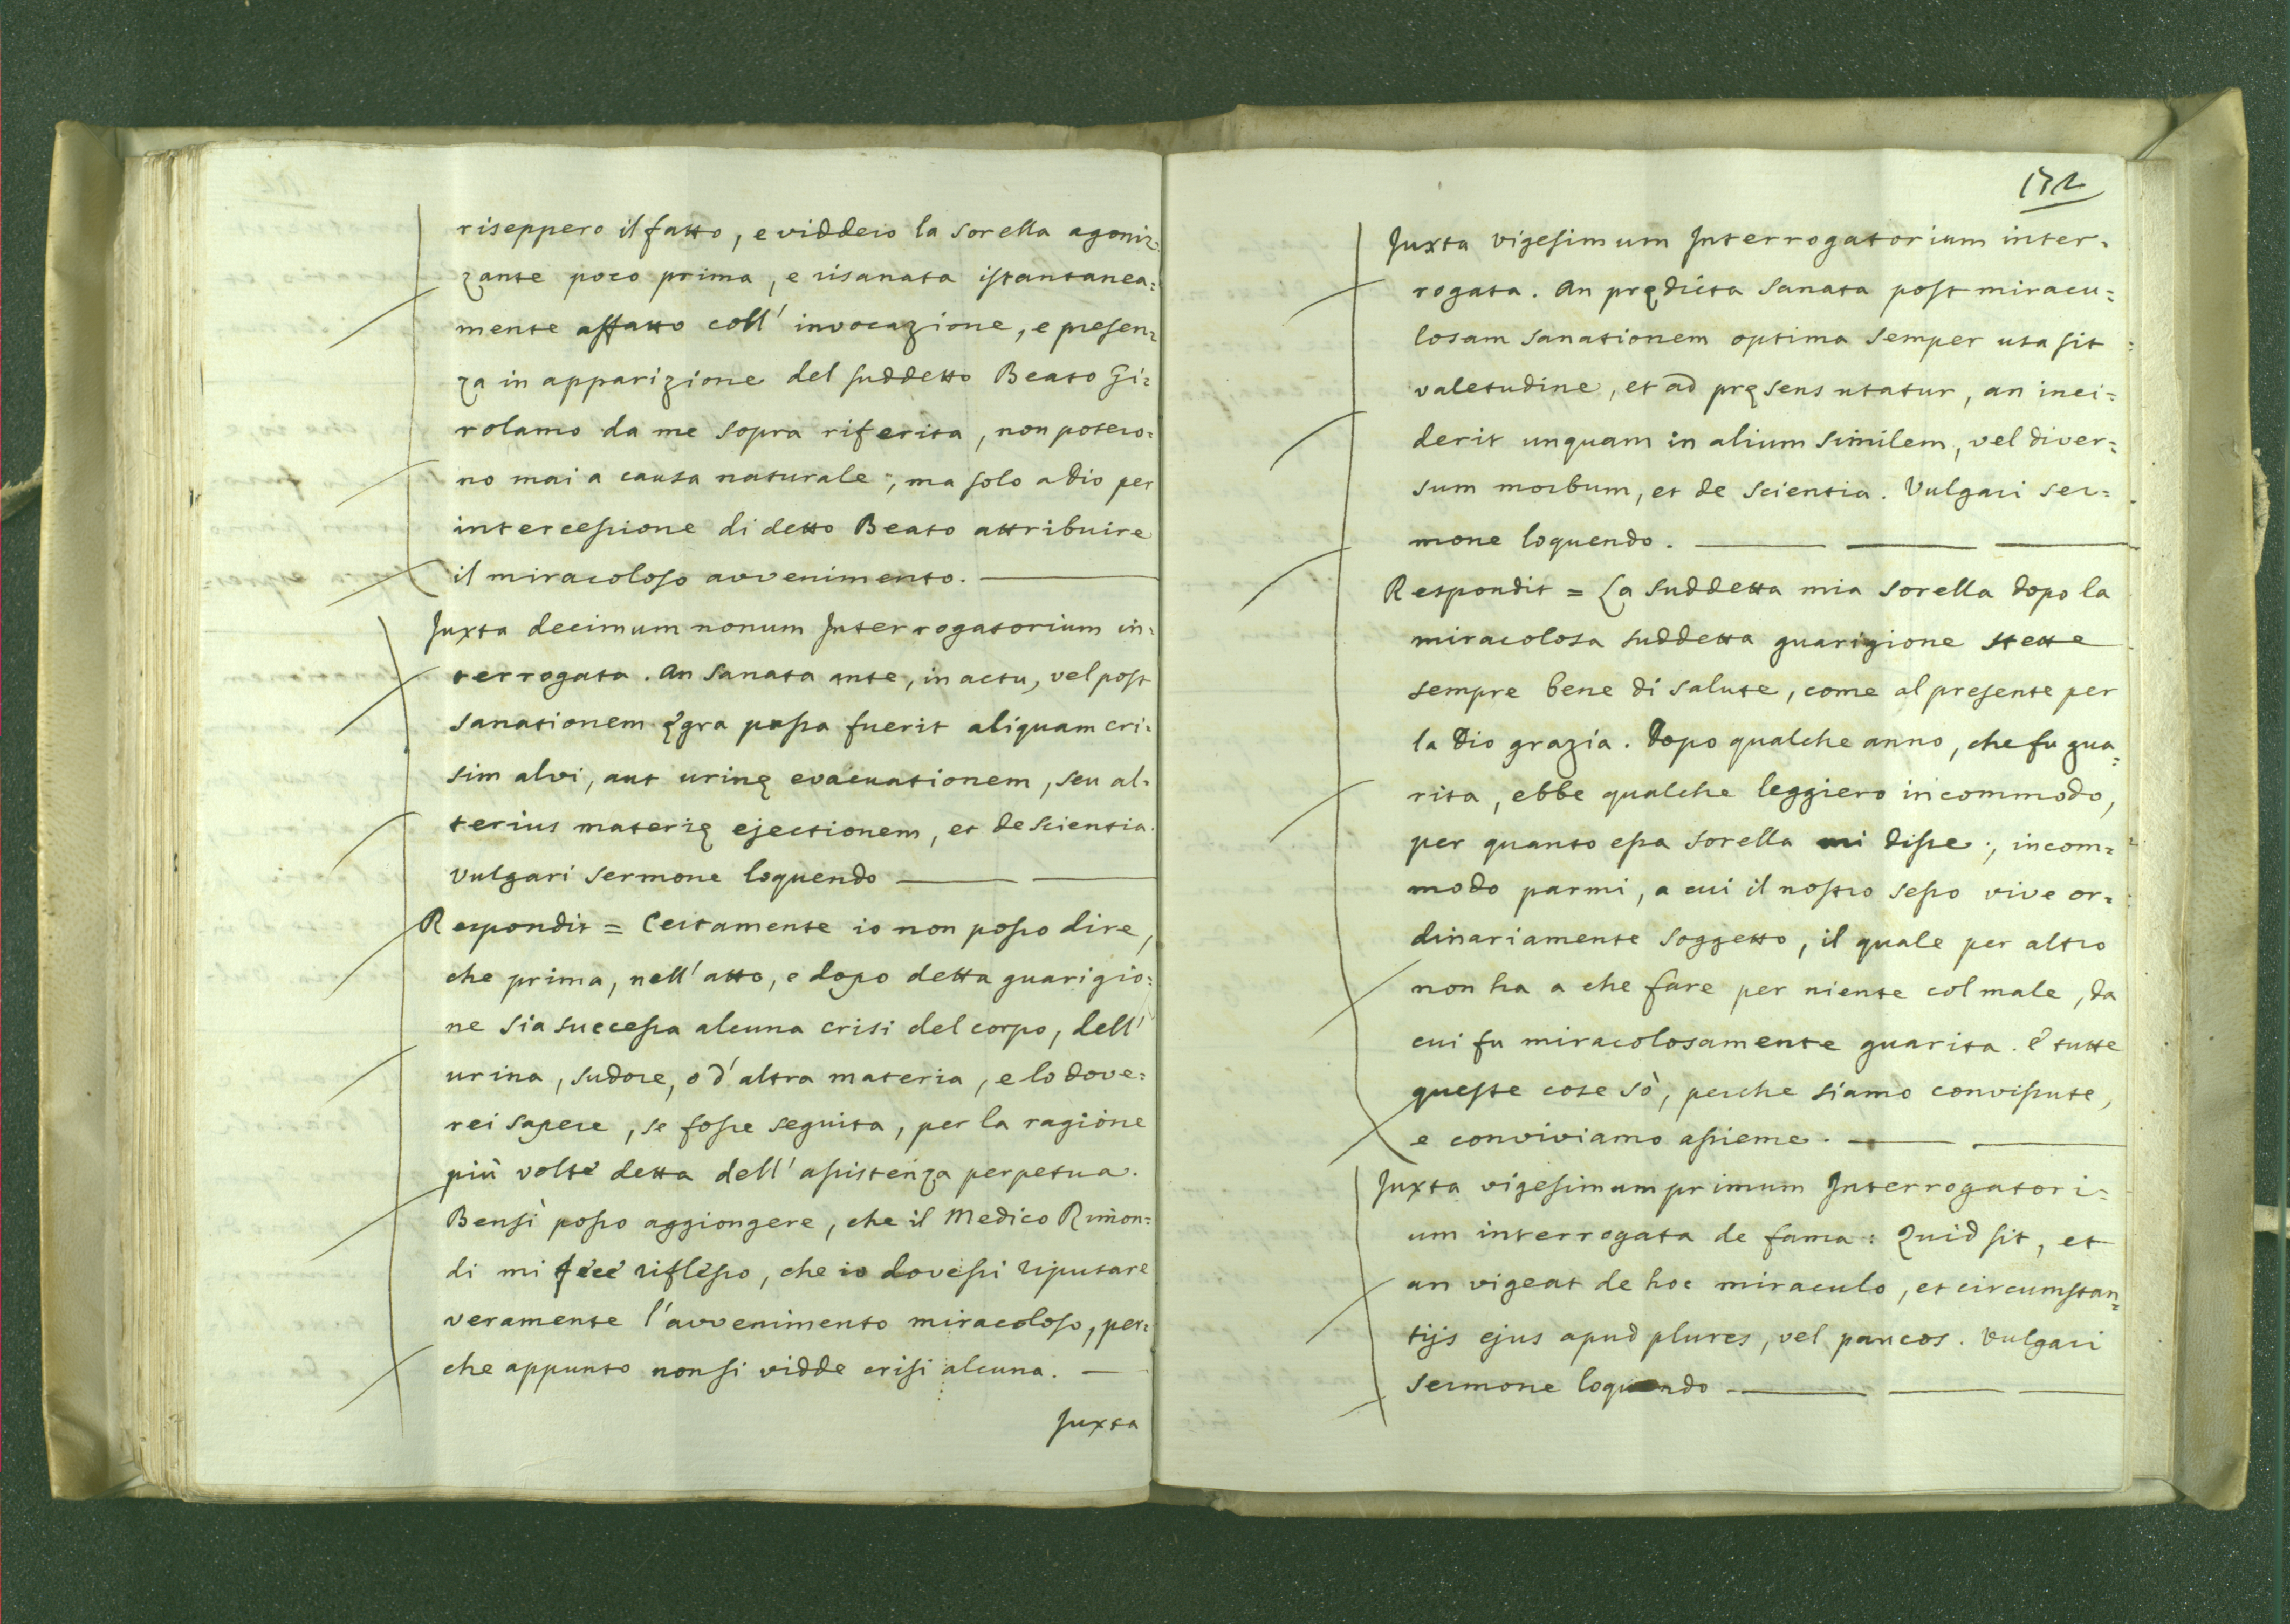 riseppero il fatto, e viddero la sorella agoniz=
zante poco prima, e risanata istantanea=
mente affatto coll' invocazione, e presen=
za in apparizione del suddetto Beato Gi=
rolamo da me sopra riferita, non potero=
no mai a causa naturale; ma solo a Dio per
intercessione di detto Beato attribuire
il miracoloso avvenimento. —
Juxta decimum nonum Interrogatorium in=
terrogata. An Sanata ante, in actu, vel post
sanationem ęgra passa fuerit aliquam cri=
sim alvi, aut urinę evacuationem, seu al=
terius materię ejectionem, et de scientia.
Vulgari sermone loquendo — —
Respondit = Certamente io non posso dire,
che prima, nell' atto, e dopo detta guarigio=
ne sia successa alcuna crisi del corpo, dell'
urina, sudore, o d' altra materia, e lo dove=
rei sapere, se fosse seguita, per la ragione
più volte detta dell' assistenza perpetua.
Bensì posso aggiongere, che il Medico Rimon=
di mi fece riflesso, che io dovessi riputare
veramente l' avvenimento miracoloso, per=
che appunto non si vidde crisi alcuna. —
Juxta
172
Juxta vigesimum Interrogatorium inter=
rogata. An prędicta Sanata post miracu=
losam sanationem optima semper usa sit
valetudine, et ad pręsens utatur, an inci=
derit unquam in alium similem, vel diver=
sum morbum, et de scientia. Vulgari ser=
mone loquendo. — — —
Respondit = La suddetta mia sorella dopo la
miracolosa suddetta guarigione stette
sempre bene di salute, come al presente per
la Dio grazia. Dopo qualche anno, che fu gua=
rita, ebbe qualche leggiero incommodo,
per quanto essa sorella mi disse; incom=
modo parmi, a cui il nostro sesso vive or=
dinariamente soggetto, il quale per altro
non ha a che fare per niente col male, da
cui fu miracolosamente guarita. e tutte
queste cose sò, perche siamo convissute,
e conviviamo assieme. — —
Juxta vigesimum primum Interrogatori=
um interrogata de fama: Quid sit, et
an vigeat de hoc miraculo, et circumstan=
tijs ejus apud plures, vel paucos. Vulgari
sermone loquendo — — —